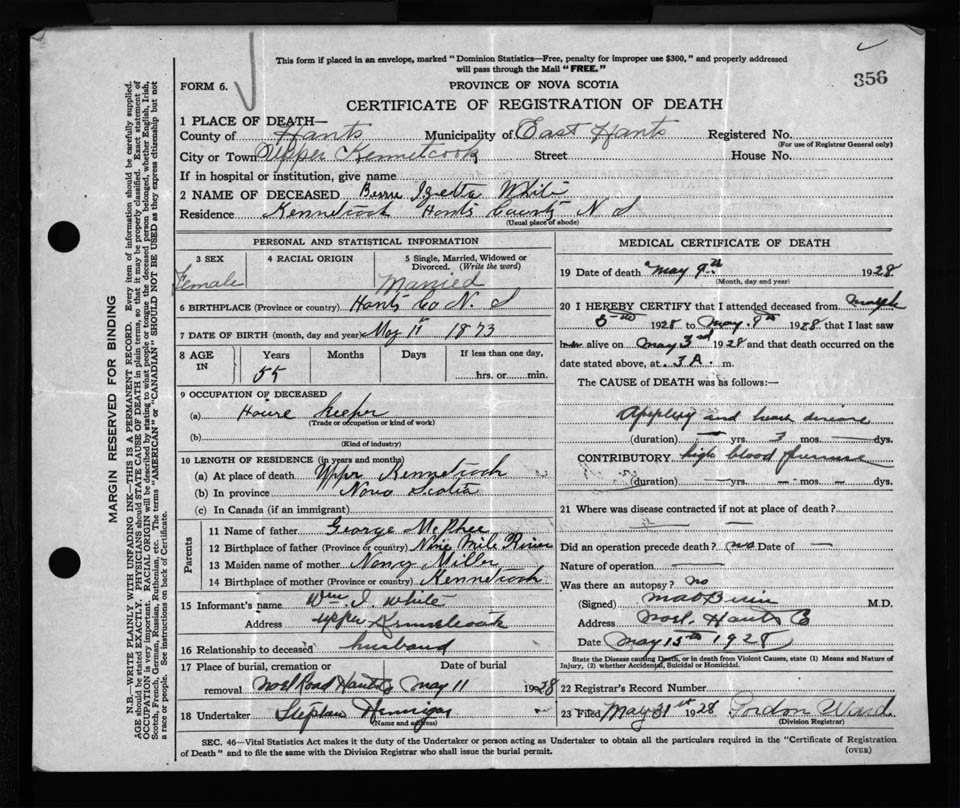 This form if placed in an envelope, marked "Dominion Statistics—Free, penalty for improper use $300," and properly addressed
will pass through the Mail "FREE."
356
FORM 6.
PROVINCE OF NOVA SCOTIA
CERTIFICATE OF REGISTRATION OF DEATH
1 PLACE OF DEATH—
County of Hants Municipality of East Hants Registered No.
(For use of Registrar General only)
City or Town Upper Kennetcook Street House No.
If in hospital or institution, give name
2 NAME OF DECEASED White
Residence Kennetcook Hants County N S
(Usual place of abode)
PERSONAL AND STATISTICAL INFORMATION
3 SEX 4 RACIAL ORIGIN 5 Single, Married, Widowed or Divorced. (Write the word)
Female Married
6 BIRTHPLACE (Province or country) Hants Co N. S
7 DATE OF BIRTH (month, day and year) May 11 1873
8 AGE IN Years Months Days If less than one day,
55 hrs. or min.
9 OCCUPATION OF DECEASED
(a) House keeper
(Trade or occupation or kind of work)
(b)
(Kind of industry)
10 LENGTH OF RESIDENCE (in years and months)
(a) At place of death Upper Kennetcook
(b) In province Nova Scotia
(c) In Canada (if an immigrant)
Parents
11 Name of father George McPhee
12 Birthplace of father (Province or country) Nine Mile River
13 Maiden name of mother Nancy Miller
14 Birthplace of mother (Province or country) Kennetcook
15 Informant's name Wm. J. White
Address Upper Kennetcook
16 Relationship to deceased husband
17 Place of burial, cremation or Date of burial
removal Noel Road Hants May 11 1928
18 Undertaker Stephen Hennigar
(Name and address)
MEDICAL CERTIFICATE OF DEATH
19 Date of death May 9th 1928
(Month, day and year)
20 I HEREBY CERTIFY that I attended deceased from
5th 1928 to May 8th 1928 that I last saw
alive on May 3rd 1928 and that death occurred on the
date stated above, at 3 A. m.
The CAUSE of DEATH was as follows:—
and heart
(duration) — yrs. 3 mos. — dys.
CONTRIBUTORY high blood pressure
(duration) — yrs. — mos. — dys.
21 Where was disease contracted if not at place of death?
Did an operation precede death? no Date of —
Nature of operation —
Was there an autopsy? no
(Signed) M.D.
Address Noel, Hants Co
Date May 15th 1928
State the Disease causing Death, or in death from Violent Causes, state (1) Means and Nature of
Injury, (2) whether Accidental, Suicidal or Homicidal.
22 Registrar's Record Number
23 Filed May 31st 1928 Gordon Ward
(Division Registrar)
SEC. 46—Vital Statistics Act makes it the duty of the Undertaker or person acting as Undertaker to obtain all the particulars required in the "Certificate of Registration
of Death" and to file the same with the Division Registrar who shall issue the burial permit.
(OVER)
MARGIN RESERVED FOR BINDING
N.B.—WRITE PLAINLY WITH UNFADING INK—THIS IS A PERMANENT RECORD. Every item of information should be carefully supplied.
AGE should be stated EXACTLY. PHYSICIANS should STATE CAUSE OF DEATH in plain terms, so that it may be properly classified. Exact statement of
OCCUPATION is very important. RACIAL ORIGIN will be described by stating to what people or tongue the deceased person belonged, whether English, Irish,
Scotch, French, German, Russian, Ruthenian, etc. The terms "AMERICAN" or "CANADIAN" SHOULD NOT BE USED as they express citizenship but not
a race or people. See instructions on back of Certificate.